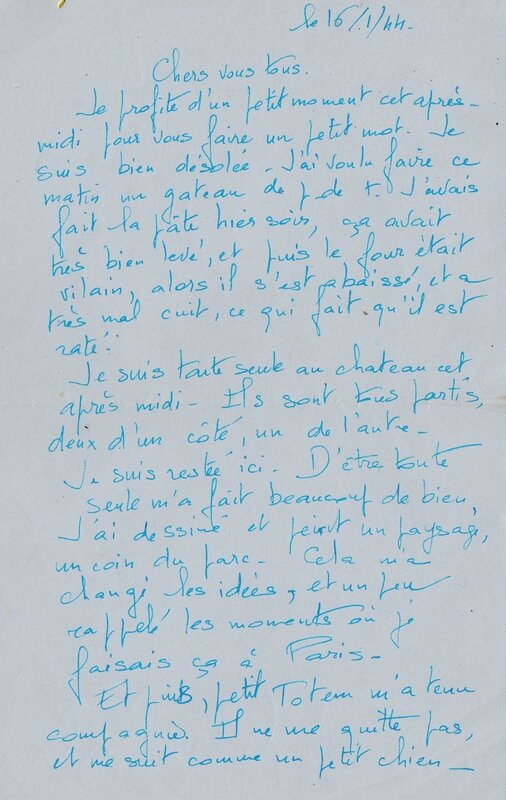 le 16/1/44.
Chers vous tous.
Je profite d'un petit moment cet après-
midi pour vous faire un petit mot. Je
suis bien désolée - J'ai voulu faire ce
matin un gateau de p. de t. J'avais
fait la pâte hier soir, ça avait
très bien levé, et puis le four était
vilain, alors il s'est abaissé, et a
très mal cuit, ce qui fait qu'il est
raté.
Je suis toute seule au chateau cet
après midi - Ils sont tous partis,
deux d'un côté, un de l'autre -
Je suis restée ici. D'être toute
seule m'a fait beaucoup de bien,
J'ai dessiné et peint un paysage,
un coin du parc - Cela m'a
changé les idées, et un peu
rappelé les moments où je
faisais ça à Paris -
Et puis, petit Totem m'a tenu
compagnie. Il ne me quitte pas,
et me suit comme un petit chien -